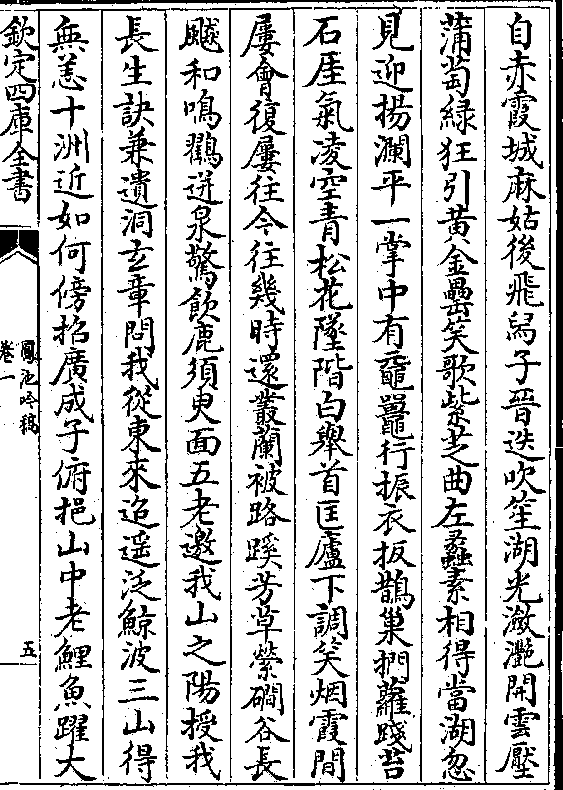 自赤霞城麻姑後飛舄子晉迭吹笙湖光瀲灧開雲壓
蒲萄綠狂引黃金罍笑歌紫芝曲左蠡素相得當湖忽
見迎揚瀾平一掌中有黿鼉行振衣扳鵲巢捫蘿踐苔
石厓氣凌空青松花墜階白舉首匡廬下調笑烟霞間
屢會復屢往今往幾時還叢蘭被路蹊芳草縈磵谷長
飈和鳴鸛迸泉驚飲鹿須臾面五老邀我山之陽授我
長生訣兼遺洞玄章問我從東來迢遥泛鯨波三山得
無恙十洲近如何傍招廣成子俯挹山中老鯉魚躍大
欽定四庫全書
鳳池吟稿
卷一
五